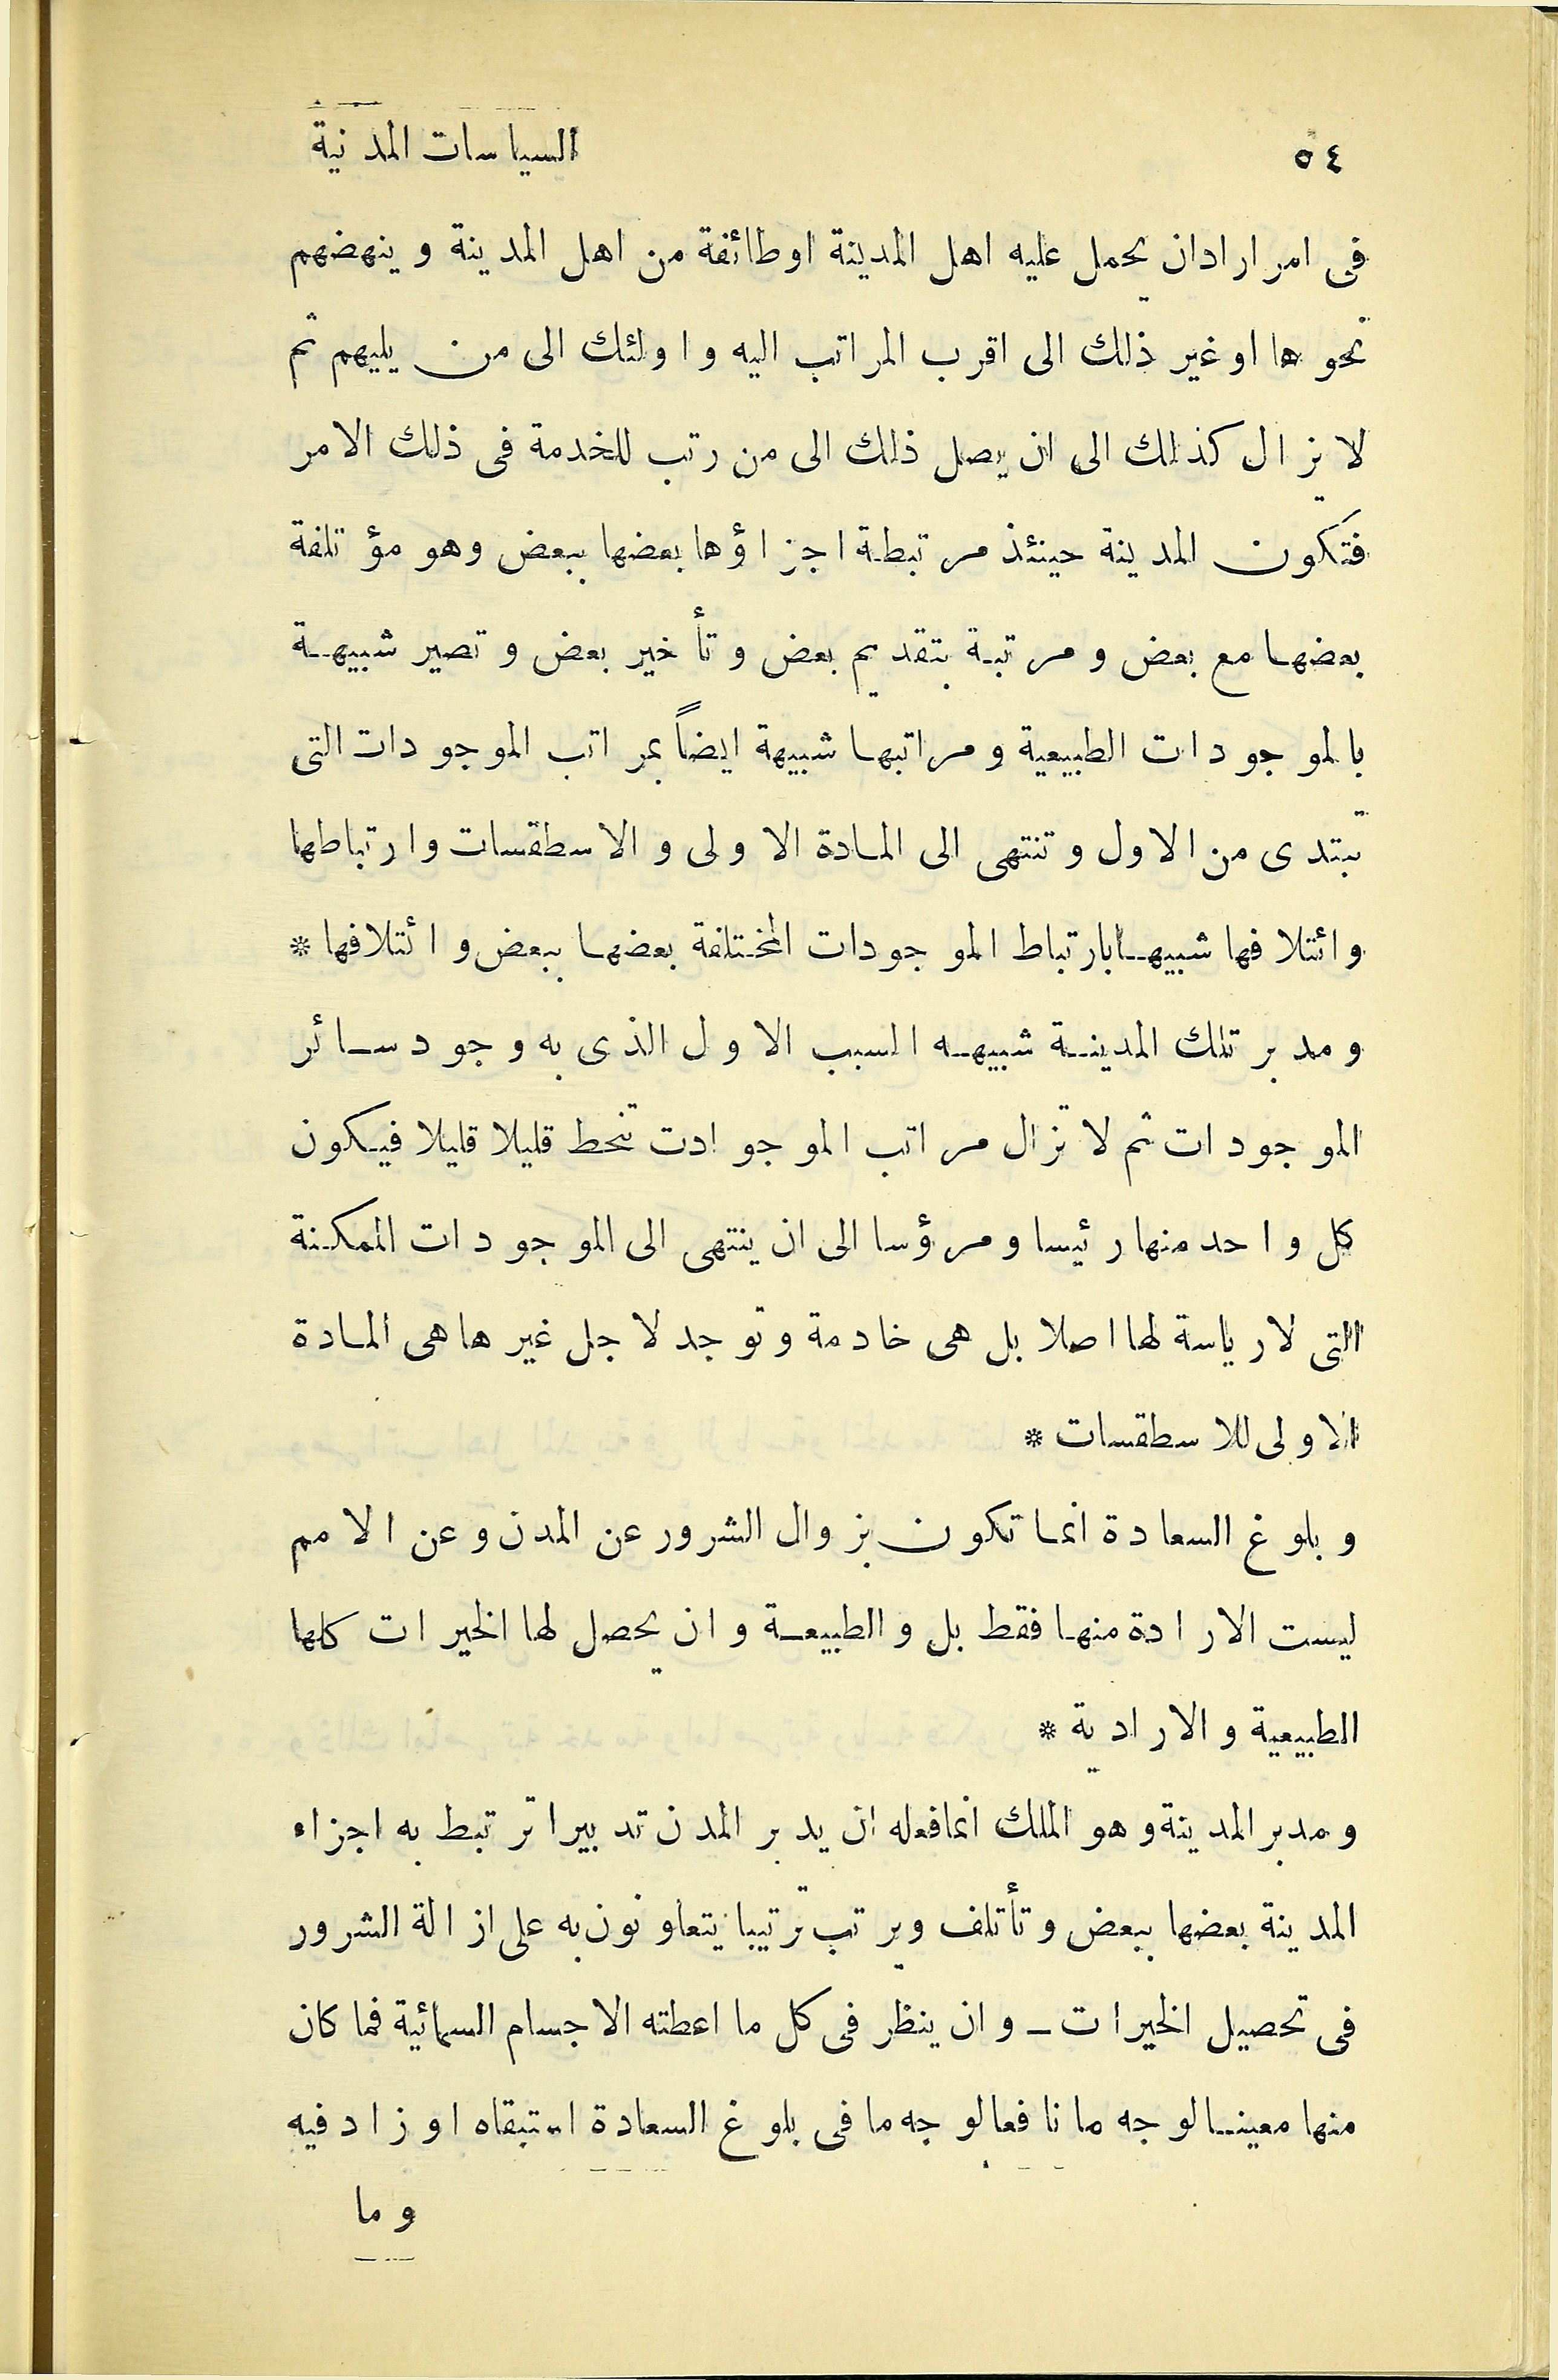 ٥٤ السياسات المدنية
فى امر ارادان يحمل عليه اهل المدينة اوطائفة من اهل المدينة وينهضهم
نحوها اوغير ذلك الى اقرب المراتب اليه واولئك الى من يليهم ثم
لايزال كذلك الى ان يصل ذلك الى من رتب للخدمة فى ذلك الامر
فتكون المدينة حينئذ مرتبطة اجزاؤها بعضها ببعض وهو مؤتلفة
بعضها مع بعض ومرتبة بتقديم بعض وتأخير بعض وتصير شبيهة
بالموجودات الطبيعية ومراتبها شبيهة ايضاً بمراتب الموجودات التى
تبتدى من الاول وتنتهى الى المادة الاولى والاسطقسات وارتباطها
وائتلافها شبيهابارتباط الموجودات المختلفة بعضها ببعض وائتلافها *
ومدبر تلك المدينة شبيهه السبب الاول الذى به وجود سائر
الموجودات ثم لا تزال مراتب الموجوادت تنحط قليلا قليلا فيكون
كل واحد منها رئيسا ومرؤسا الى ان ينتهى الى الموجودات الممكنة
التى لارياسة لها اصلا بل هى خادمة وتوجد لاجل غيرها هى المادة
الاولى للاسطقسات *
وبلوغ السعادة انما تكون بزوال الشرور عن المدن وعن الامم
ليست الارادة منها فقط بل والطبيعة وان يحصل لها الخيرات كلها
الطبيعية والارادية *
ومدبر المدينة وهو الملك انمافعله ان يدبر المدن تدبيرا ترتبط به اجزاء
المدينة بعضها ببعض وتأتلف ويرتب ترتيبا يتعاونون به على ازالة الشرور
فى تحصيل الخيرات ـ وان ينظر فى كل ما اعطته الاجسام السمائية فما كان
منها معينا لوجه ما نافعا لوجه ما فى بلوغ السعادة استبقاه او زاد فيه
وما